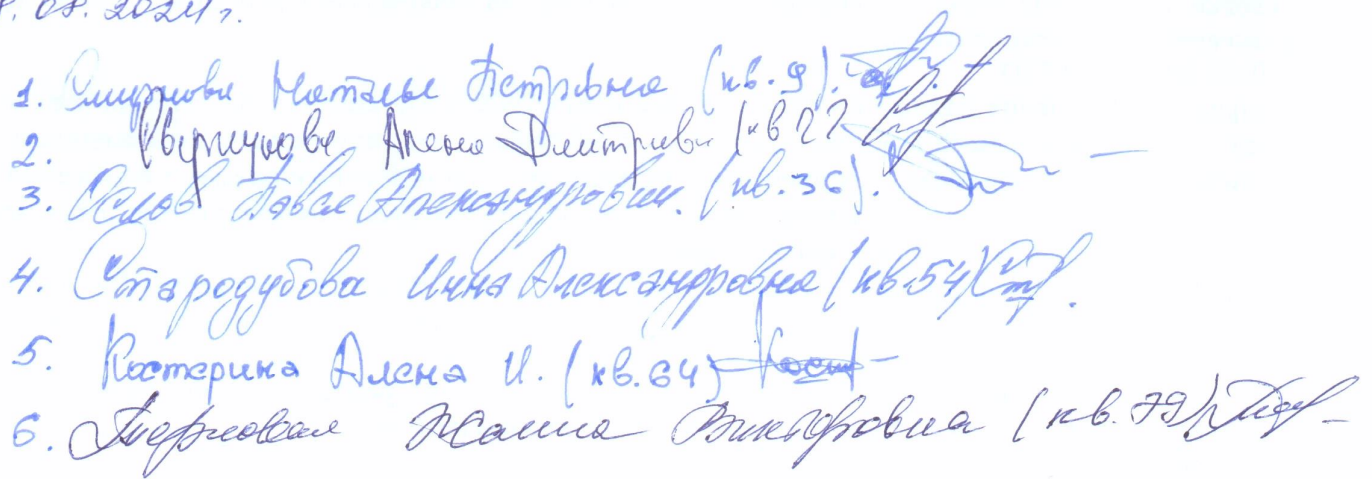 .08.2024 г.
1. Смирнова Наталья Петровна (кв. 9).
2. Алена Дмитриевна (кв 22
3. Павел Александрович. (кв. 36).
4. Стародубова Инна Александровна (кв 54)
5. Костерина Алена И. (кв. 64)
6. Жанна Викторовна (кв. 79)